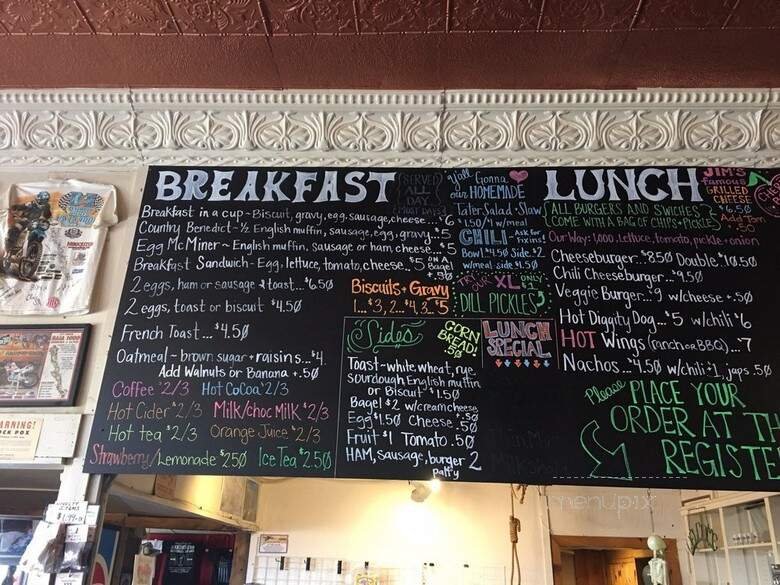 BREAKFAST
SERVED ALL DAY
Breakfast in a cup ~ Biscuit, gravy, egg, sausage, cheese...
Country Benedict - ½ English muffin, sausage, egg, gravy..$5
Egg Mc Miner ~ English muffin, sausage or ham, cheese...$5
Breakfast Sandwich - Egg, lettuce, tomato, cheese..$5 ON A Bagel .50
2 eggs, ham or sausage & toast...$6.50
2 eggs, toast or biscuit $4.50
French Toast...$4.50
Oatmeal ~ brown sugar + raisins...$4.
Add Walnuts or Banana + .50
Coffee $2/3 Hot CoCoa $2/3
Hot Cider $2/3 Milk/Choc Milk $2/3
Hot tea $2/3 Orange Juice $2/3
Strawberry/Lemonade $2.50 Ice Tea $2.50
Biscuits + Gravy
1...$3, 2...$4, 3..$5
Sides
CORN BREAD! .50
Toast - white, wheat, rye,
sourdough, English muffin
or Biscuit $1.50
Bagel $2 w/creamcheese .50
Egg $1.50 Cheese .50
Fruit $1 Tomato .50
HAM, sausage, burger 2
patty
y'all Gonna
our HOMEMADE
Tater Salad - Slaw
$1.50/1 w/meal
CHILI Ask for Fixins!
Bowl $4.50 Side $2
w/meal side $1.50
TRY OUR XL
DILL PICKLES
LUNCH
SPECIAL
LUNCH
JIM'S
famous
GRILLED
CHEESE
$6.50
Add Ham
.50
ALL BURGERS AND SWICHES
COME WITH A BAG OF CHIPS + PICKLE
Our Way: 1,000, lettuce, tomato, pickle + onion
Cheeseburger...$8.50 Double $10.50
Chili Cheeseburger...$9.50
Veggie Burger...$9 w/cheese + .50
Hot Diggity Dog...$5 w/chili $6
HOT Wings (ranch or BBQ)...$7
Nachos...$4.50 w/chili + 1, japs .50
Please PLACE YOUR
ORDER AT TH
REGISTE
BAJA 1000
ARNING!
$1.99
menupix